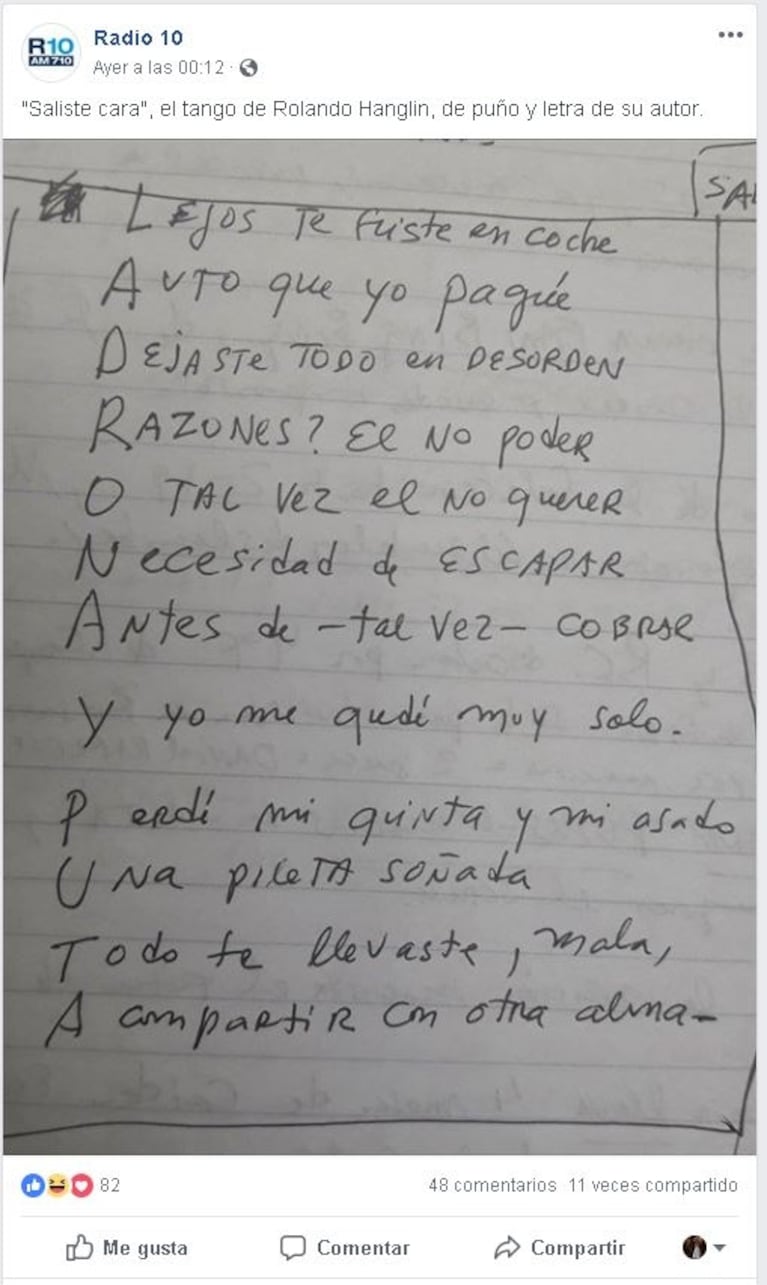 Radio 10
R10
AM 710
Ayer a las 00:12 ·
"Saliste cara", el tango de Rolando Hanglin, de puño y letra de su autor.
SAL
LEJOS TE fuiste en coche
AUTO que yo pagúe
DEJASTE TODO en DESORDEN
RAZONES? El NO poder
O TAL VEZ el NO querer
Necesidad de ESCAPAR
ANtes de -tal vez- COBRAR
Y yo me qudé muy solo.
Perdí mi quinta y mi asado
UNa pileTA soñada
Todo te llevaste, mala,
A compartir con otra alma-
82
48 comentarios 11 veces compartido
Me gusta Comentar Compartir